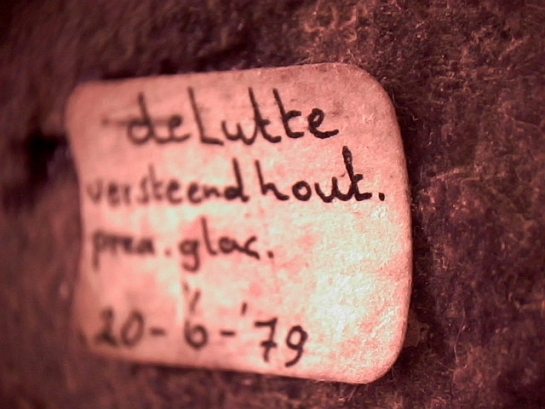 de Lutte
versteend hout.
prea. glac.
20-6-'79